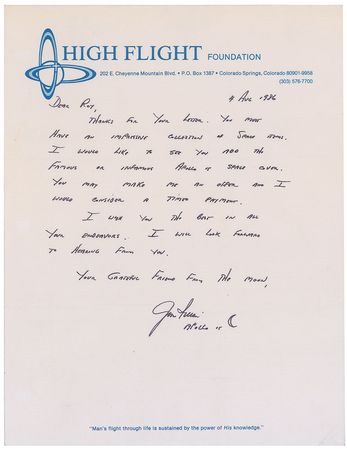 HIGH FLIGHT FOUNDATION
202 E. Cheyenne Mountain Blvd. • P.O. Box 1387 • Colorado Springs, Colorado 80901-9958
(303) 576-7700
4 Aug 1986
Dear Roy,
Thanks for your letter. You must
have an impressive collection of space items.
I would like to see you add the
famous or infamous Apollo 15 space cover.
You may make me an offer and I
would consider a timed payment.
I wish you the best in all
your endeavors. I will look forward
to hearing from you.
Your grateful friend from the moon,
Jim Irwin
Apollo 15
"Man's flight through life is sustained by the power of His knowledge."